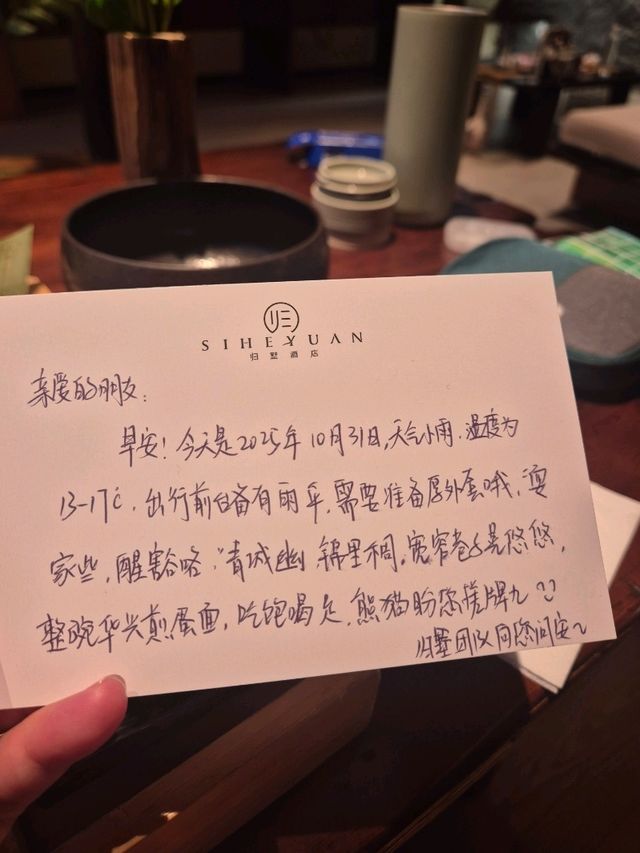 归
SIHEYUAN
归墅酒店
亲爱的朋友:
早安!今天是2025年10月31日,天气小雨.温度为
13-17℃.出行前台备有雨伞,需要准备厚外套哦,耍
家些,醒豁咯."青城幽,锦里稠,宽窄巷子是悠悠,
整碗华兴煎蛋面,吃饱喝足.熊猫盼您搓牌九
归墅团队向您问安~